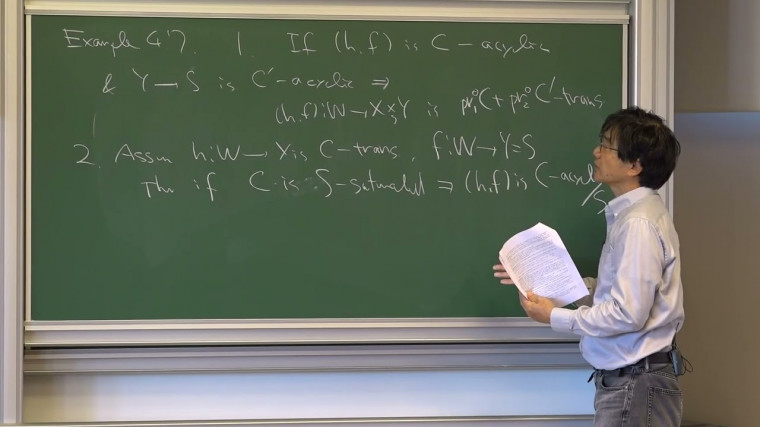 Example 4.7. 1. If (h,f) is C-acyclic
& Y → S is C'-acyclic ⇒
(h,f): W → X ×_S Y is pr₁°C + pr₂°C'-trans.
2. Assum h: W → X is C-trans, f: W → Y = S
Then if C is S-saturated ⇒ (h,f) is C-acycl
/S